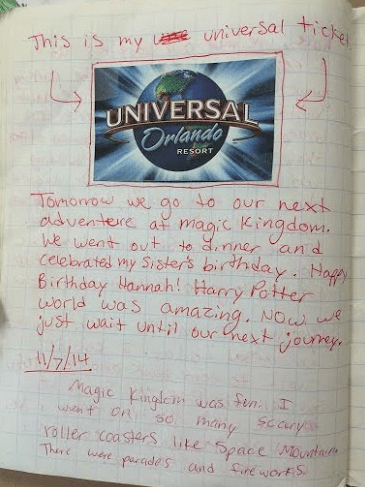 This is my universal ticket
UNIVERSAL
Orlando
RESORT
Tomorrow we go to our next
adventure at magic Kingdom.
We went out to dinner and
celebrated my Sister's birthday. Happy
Birthday Hannah! Harry Potter
world was amazing. Now we
just wait until our next journey.
11/7/14
Magic Kingdom was fun. I
went on so many scary
roller coasters like Space Mountain.
There were parades and fireworks.